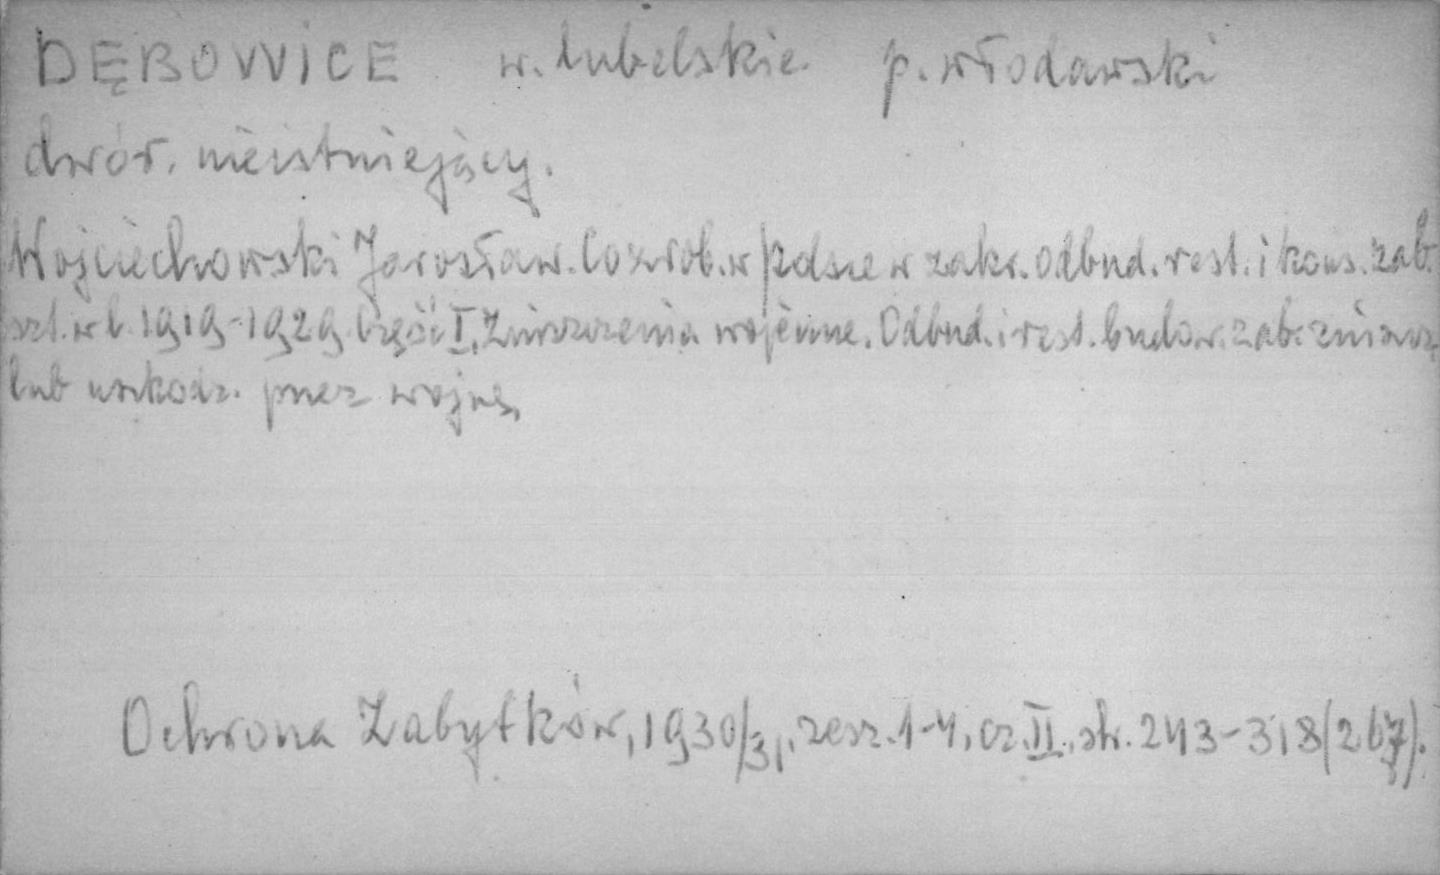 DĘBOWICE w. lubelskie p. włodawski
dwór. nieistniejący.
Wojciechowski Jarosław. Co zrob. w Polsce w zakr. odbud. rest. i kons. zab.
szt. w l. 1919-1929. Część I, Zniszczenia wojenne. Odbud. i rest. budow. zab. zniszcz.
lub uszkodz. przez wojnę,
Ochrona Zabytków, 1930/31, zesz. 1-4, cz. II, str. 243-318 (267).